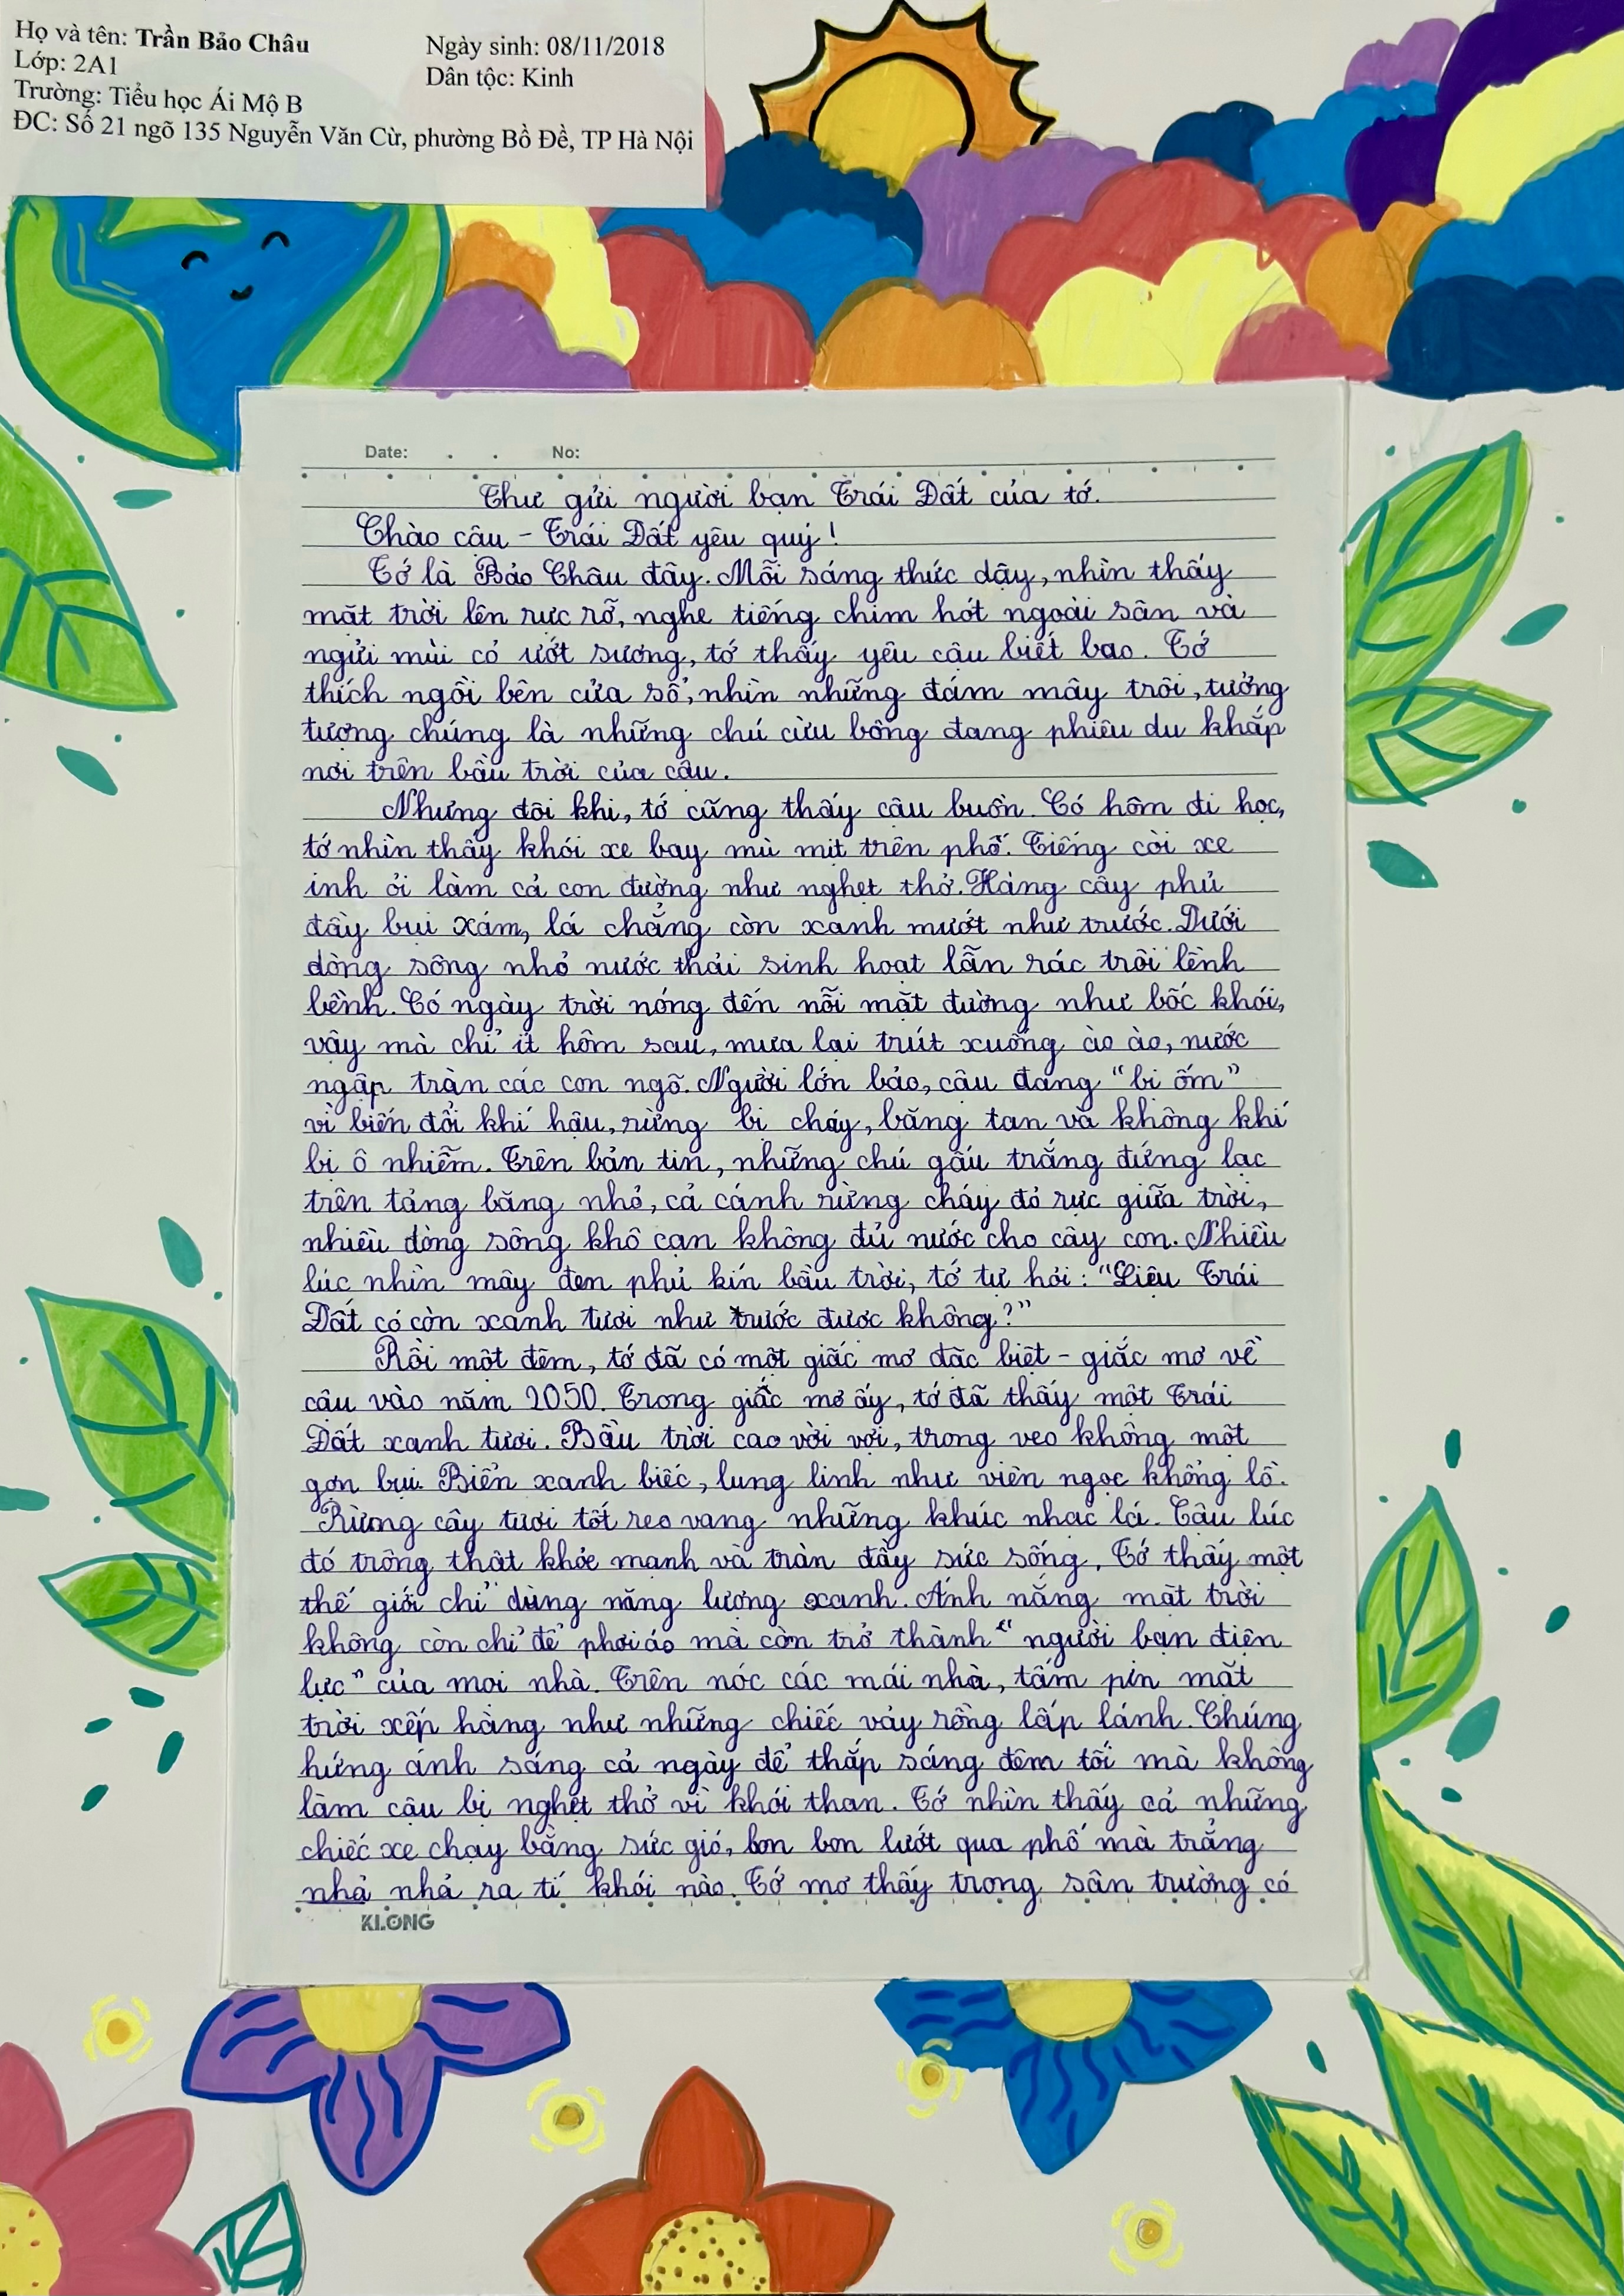 Họ và tên: Trần Bảo Châu
Ngày sinh: 08/11/2018
Lớp: 2A1
Dân tộc: Kinh
Trường: Tiểu học Ái Mộ B
ĐC: Số 21 ngõ 135 Nguyễn Văn Cừ, phường Bồ Đề, TP Hà Nội
Date: . . No:
Thư gửi người bạn Trái Đất của tớ.
Chào cậu - Trái Đất yêu quý!
Tớ là Bảo Châu đây. Mỗi sáng thức dậy, nhìn thấy
mặt trời lên rực rỡ, nghe tiếng chim hót ngoài sân và
ngửi mùi cỏ ướt sương, tớ thấy yêu cậu biết bao. Tớ
thích ngồi bên cửa sổ, nhìn những đám mây trôi, tưởng
tượng chúng là những chú cừu bông đang phiêu du khắp
nơi trên bầu trời của cậu.
Nhưng đôi khi, tớ cũng thấy cậu buồn. Có hôm đi học,
tớ nhìn thấy khói xe bay mù mịt trên phố. Tiếng còi xe
inh ỏi làm cả con đường như nghẹt thở. Hàng cây phủ
đầy bụi xám, lá chẳng còn xanh mướt như trước. Dưới
dòng sông nhỏ nước thải sinh hoạt lẫn rác trôi lềnh
bềnh. Có ngày trời nóng đến nỗi mặt đường như bốc khói,
vậy mà chỉ ít hôm sau, mưa lại trút xuống ào ào, nước
ngập tràn các con ngõ. Người lớn bảo, cậu đang "bị ốm"
vì biến đổi khí hậu, rừng bị cháy, băng tan và không khí
bị ô nhiễm. Trên bản tin, những chú gấu trắng đứng lạc
trên tảng băng nhỏ, cả cánh rừng cháy đỏ rực giữa trời,
nhiều dòng sông khô cạn không đủ nước cho cây con. Nhiều
lúc nhìn mây đen phủ kín bầu trời, tớ tự hỏi: "Liệu Trái
Đất có còn xanh tươi như trước được không?"
Rồi một đêm, tớ đã có một giấc mơ đặc biệt - giấc mơ về
cậu vào năm 2050. Trong giấc mơ ấy, tớ đã thấy một Trái
Đất xanh tươi. Bầu trời cao vời vợi, trong veo không một
gợn bụi. Biển xanh biếc, lung linh như viên ngọc khổng lồ.
Rừng cây tươi tốt reo vang những khúc nhạc lá. Cậu lúc
đó trông thật khỏe mạnh và tràn đầy sức sống. Tớ thấy một
thế giới chỉ dùng năng lượng xanh. Ánh nắng mặt trời
không còn chỉ để phơi áo mà còn trở thành "người bạn điện
lực" của mọi nhà. Trên nóc các mái nhà, tấm pin mặt
trời xếp hàng như những chiếc vảy rồng lấp lánh. Chúng
hứng ánh sáng cả ngày để thắp sáng đêm tối mà không
làm cậu bị nghẹt thở vì khói than. Tớ nhìn thấy cả những
chiếc xe chạy bằng sức gió, bon bon lướt qua phố mà trẳng
nhả nhả ra tí khói nào. Tớ mơ thấy trong sân trường có
KLONG